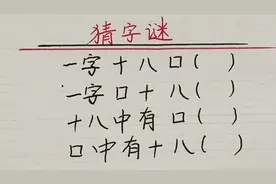 猜字谜
一字十八口( )
一字口十八( )
十八中有口( )
口中有十八( )